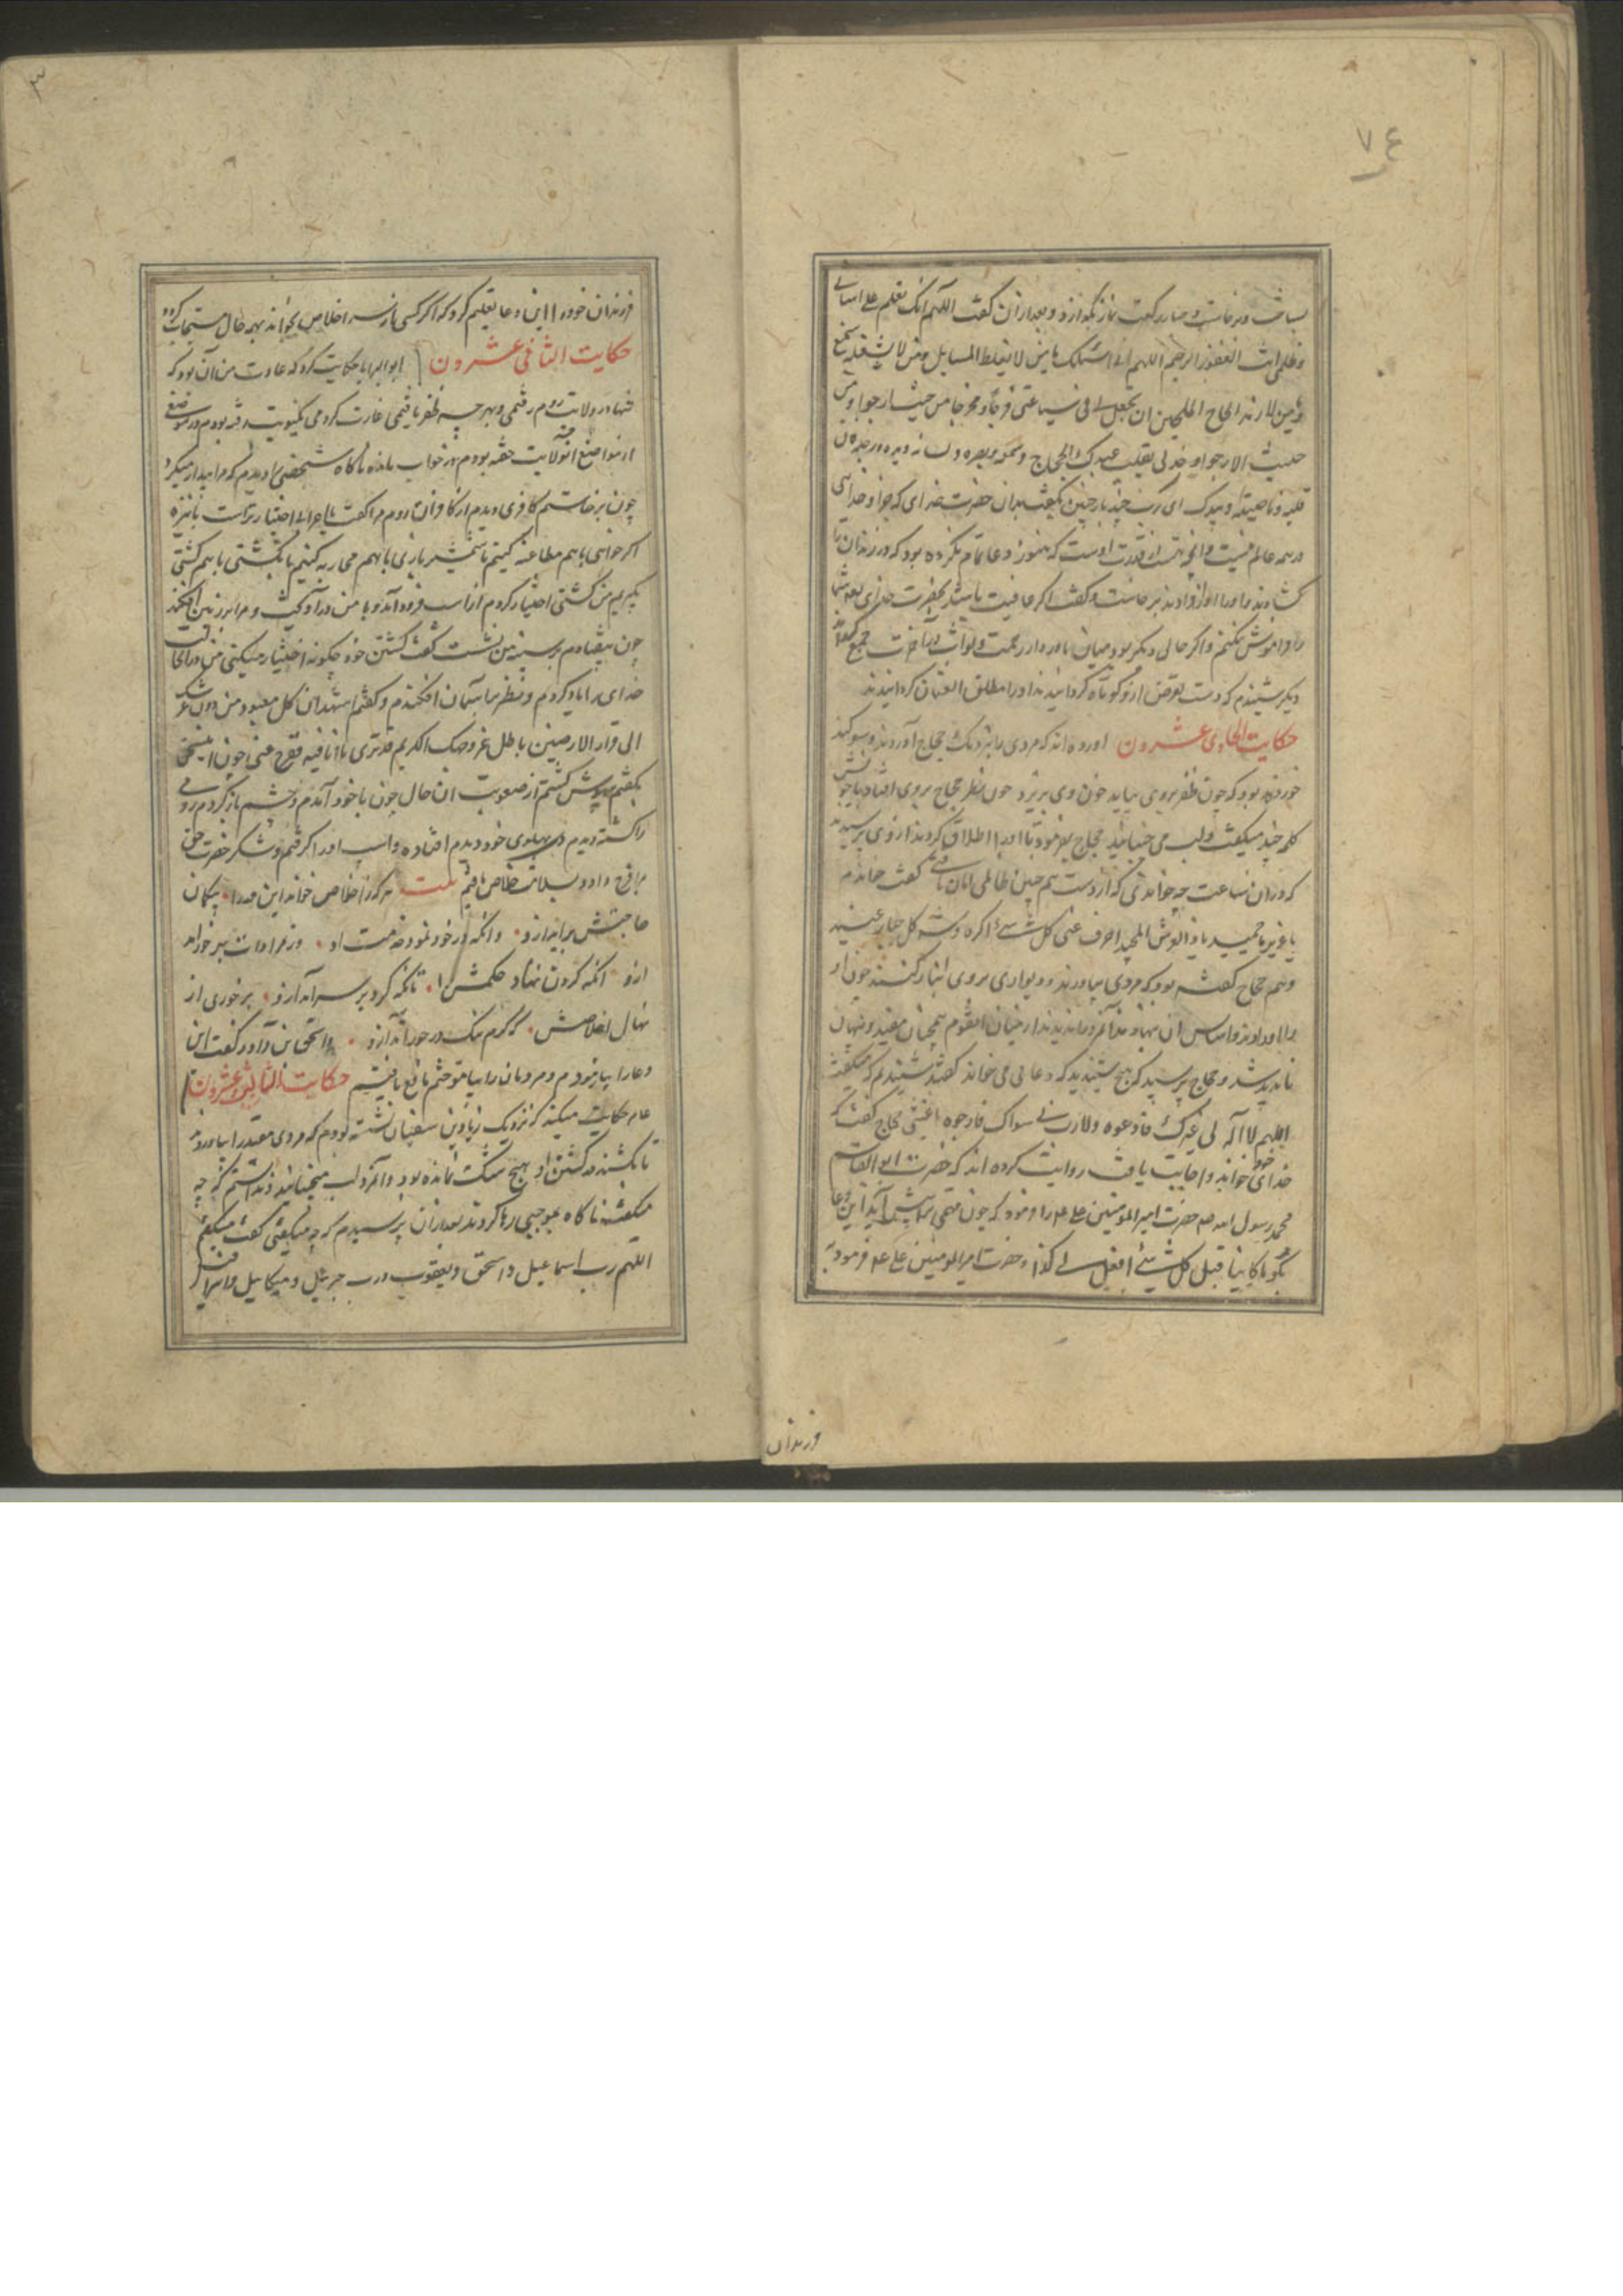 ۷۶
بساخت و برخاست و چهار رکعت نماز بگذارد و بعد از آن گفت اللهم انک تعلم علی اساتی
و ظلمی انت الغفور الرحیم اللهم انی اسئلک یا من لا یغلط المسایل و من لا یشغله سمع
ان تجعل لی فی ساعتی فرجا و مخرجا من حیث ارجوا و من
حیث لا ارجوا و خذ لی بقلب عبدک الحجاج و سمعه و بصره و لسانه و یده و رجله
قلبه و ناصیته و بیدک ای رب چند بار چنین بگفت بدان حضرت خدای که جز او خدایی
در همه عالم نیست و آنچه هست از قدرت اوست که هنوز دعا تمام نکرده بود که در زندان
کشادند و او را آواز دادند برخاست و گفت اگر عافیت باشد بحضرت خدای که شما
را فراموش نکنم و اگر حالی دیگر بود میان ما در دار رحمت و ثواب در آخرت جمع
دیگر شنیدم که دست تعرض ازو کوتاه گردانیدند او را مطلق العنان گردانیدند
حکایت الحادی عشرون آورده اند که مردی را بنزدیک حجاج آوردند و سوگند
خورده بود که چون ظفر بروی بیابد خون وی بریزد چون نظر حجاج بروی افتاد با خویش
کلمه چند میگفت و لب می جنبانید حجاج بفرمود تا او را اطلاق کردند از وی پرسیدند
که در آن ساعت چه خواندی که از دست هم چنین ظالمی امان یافتی گفت خواندم
یا عزیز یا حمید یا ذا العرش المجید اصرف عنی کل شیء اکره و شر کل جبار عنید
و هم حجاج گفته بود که مردی بیاورند و دیواری بروی انبار کنند چون او
را بیاوردند و اساس آن نهادند
ناپدید شد و حجاج پرسید که هیچ شنیدید که دعایی می خواند گفتند شنیدیم که میگفت
اللهم لا اله لی غیرک فادعوه ولا رب لی سواک فارجوه اغثنی حجاج گفت که
خدای خود خواند و اجابت یافت روایت کرده اند که حضرت ابوالقاسم
محمد رسول الله صلم حضرت امیرالمومنین علی علم را فرمود که چون مهمی ترا پیش آید این دعا
بگو یا کاینا قبل کل شیئ افعل لی کذا و حضرت امیرالمومنین علی علم فرمود
فرزندان
۳
فرزندان خود را این دعا تعلیم کرد که اگر کسی از سر اخلاص بخواند بهر حال مستجاب گردد
حکایت الثانی عشرون ابوالبرایا حکایت کرد که عادت من آن بود که
تنها در ولایت روم رفتمی و بهر چه ظفر یافتمی غارت کردمی یکنوبت رفته بودم در موضعی
از مواضع آن ولایت خفته بودم در خواب مانده ناگاه شخصی را دیدم که مرا بیدار میکرد
چون برخاستم کافری دیدم از کافران روم مرا گفت یا اعرابی اختیار تراست با نیزه
اگر خواهی باهم مطاعنه کنیم یا شمشیر بازی باهم محاربه کنیم یا بکشتی باهم کشتی
بگیریم من کشتی اختیار کردم از اسب فرود آمد و با من درآویخت و مرا بر زمین افکند
چون بیفتادم بر سینه من نشست گفت کشتن خود چگونه اختیار میکنی من در آنحالت
خدای را یاد کردم و نظر بآسمان افکندم و گفتم اشهد ان کل معبود من دون عرشک
الی قرار الارضین باطل غیر وجهک الکریم قد تری ما انا فیه ففرج عنی چون این سخن
بگفتم بیهوش گشتم از صعوبت آن حال چون با خود آمدم و چشم باز کردم رومی
را کشته دیدم در پهلوی خود دیدم افتاده و اسب او را گرفتم و شکر حضرت حق
مرا فرج داد و بسلامت خلاص یافتم بیت هر که ز اخلاص خواند این مدرا بیگمان
حاجتش برآید ازو وانکه در خود نمود خدمت او وز مرادات برخوراند
ازو آنکه گردن نهاد حکمش را تانکه گرد بر سرآید ازو برخوری از
نهال اخلاصش که کرم نیک در خور آید ازو و اسحق بن داود گفت این
دعا را بیازمودم و مردمان را بیاموختم نافع یافتیم حکایت الثالث و عشرون
عام حکایت میکند که نزدیک زیاد بن سفیان نشسته بودم که مردی مقید را بیاوردند
تا بکشند در کشتن او هیچ شک نمانده بود و آنمرد لب میجنبانید و ندانستم که چه
میگفت ناگاه بموجبی رها کردند بعد از آن پرسیدم که چه میگفتی گفت میگفتم
اللهم رب اسماعیل و اسحق و یعقوب و رب جبرئیل و میکائیل و اسرافیل